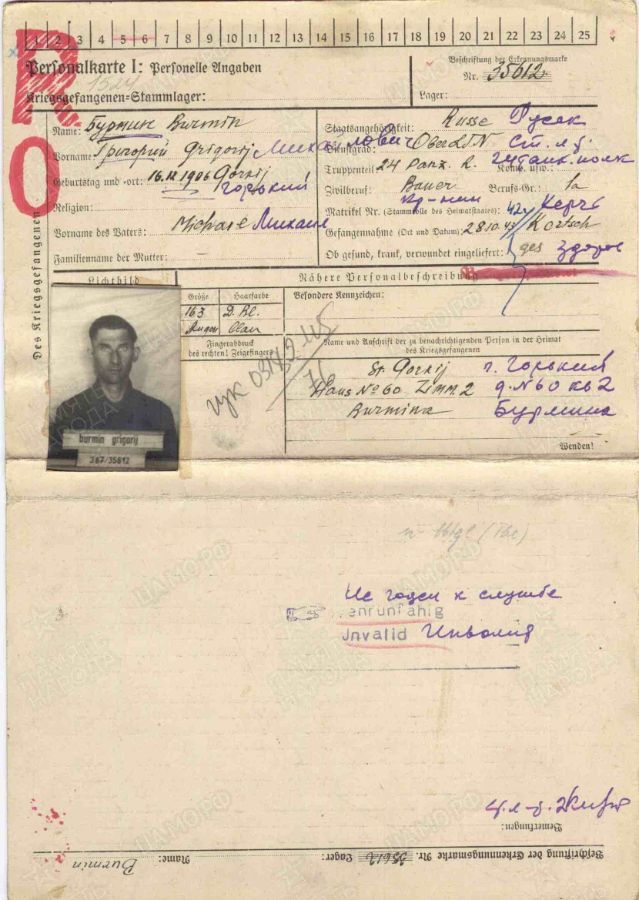 1 2 3 4 5 6 7 8 9 10 11 12 13 14 15 16 17 18 19 20 21 22 23 24 25
Personalkarte I: Personelle Angaben
Kriegsgefangenen-Stammlager:
Beschriftung der Erkennungsmarke
Nr. 35612
Lager:
Des Kriegsgefangenen
Name: Бурмин Burmin
Vorname: Григорий Grigorij Михайлович
Geburtstag und -ort: 16.11.1906 Gorkij
Горький
Religion:
Vorname des Vaters: Michael Михаил
Familienname der Mutter:
Staatsangehörigkeit: Russe Русак
Dienstgrad: Ober LTN Ст. л-т
Truppenteil: 24 Panz. R. 24 танк. полк Komp. usw.:
Zivilberuf: Bauer Berufs-Gr.: 1a
Кр-нин
Matrikel Nr. (Stammrolle des Heimatstaates): 42 Керчь
Gefangennahme (Ort und Datum): 28.10.43 Kertsch
Ob gesund, krank, verwundet eingeliefert: ges Здоров
Lichtbild
Nähere Personalbeschreibung
Größe Haarfarbe
163 D. Bl.
Augen
Fingerabdruck
des rechten! Zeigefingers
Besondere Kennzeichen:
Name und Anschrift der zu benachrichtigenden Person in der Heimat
des Kriegsgefangenen
St. Gorkij г. Горький
Haus No 60 Zimm. 2 д. N 60 кв 2
Burmina Бурмина
Wenden!
burmin grigorij
367/35612
Не годен к службе
Invalid Инвалид
Bemerkungen:
Beschriftung der Erkennungsmarke Nr. 35612 Lager: Name: Burmin
ПАМЯТЬ НАРОДА
ЦАМО.РФ